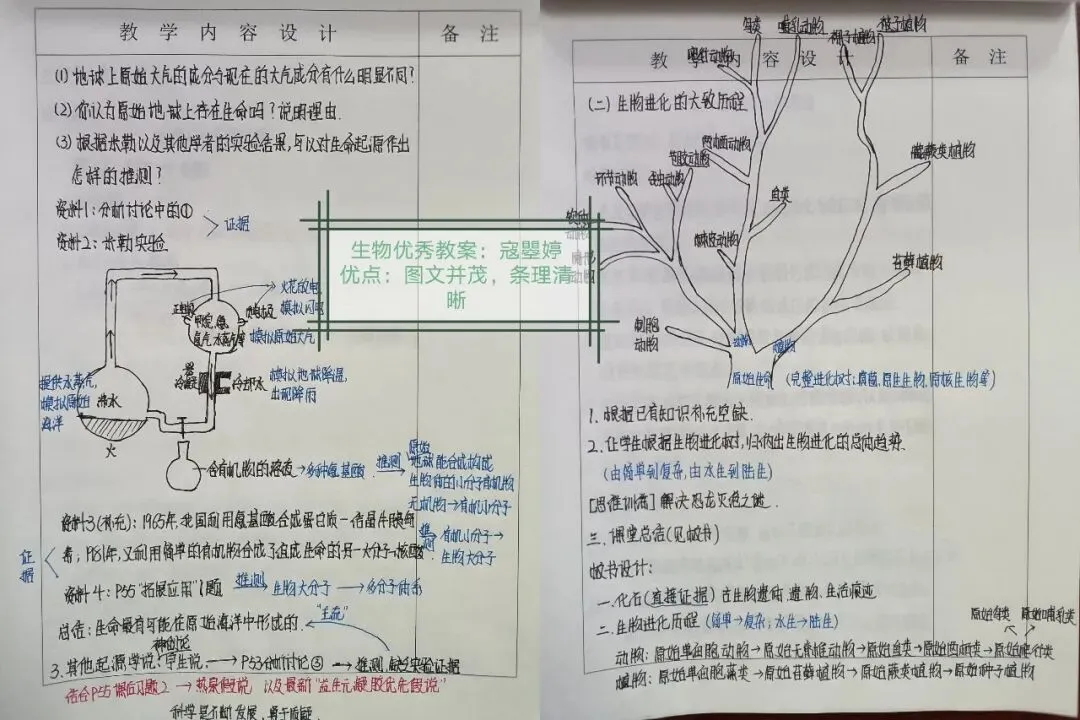 教 学 内 容 设 计
备 注
(1) 地球上原始大气的成分与现在的大气成分有什么明显不同?
(2) 你认为原始地球上存在生命吗? 说明理由.
(3) 根据米勒以及其他学者的实验结果,可以对生命起源作出
怎样的推测?
资料1:分析讨论中的①
证据
资料2:米勒实验
火花放电
模拟闪电
正电极
负电极
甲烷、氨
氢气、水蒸气等
模拟原始大气
冷凝器
冷却水
模拟地球降温,
出现降雨
提供水蒸气,
模拟原始
海洋
沸水
火
含有机物的溶液→多种氨基酸
推测
原始
地球能合成构成
生物体的小分子有机物
无机物→有机小分子
资料3(补充):1965年,我国利用氨基酸合成蛋白质—结晶牛胰岛
素;1981年,又利用简单的有机物合成了组成生命的另一大分子—核酸
推测
有机小分子→
生物大分子
证据
资料4:P55"拓展应用"1题
推测
生物大分子→多分子体系
总结:生命最有可能在原始海洋中形成的.
"主流"
神创论
3.其他起源学说:宇生说,→P53分析讨论③→推测,缺乏实验证据
结合P55课后习题2→热泉假说
科学是不断发展,勇于质疑.
生物优秀教案:寇曌婷
优点:图文并茂,条理清
晰
教
内 容 设 计
备 注
鸟类
哺乳动物
裸子植物
被子植物
爬行动物
(二) 生物进化的大致历程
两栖动物
鱼类
蕨类植物
环节动物
苔藓植物
动物
植物
原始生命
(完整进化树:真菌,原生生物,原核生物等)
1. 根据已有知识补充空缺.
2. 让学生根据生物进化树,归纳出生物进化的总体趋势.
(由简单到复杂,由水生到陆生)
[思维训练] 解决恐龙灭绝之谜.
三. 课堂总结(见板书)
板书设计:
一.化石(直接证据)古生物遗体、遗物、生活痕迹
二.生物进化历程 (简单→复杂;水生→陆生)
原始鸟类
原始哺乳类
动物: 原始单细胞动物→原始无脊椎动物→原始鱼类→原始两栖类→原始爬行类
植物: 原始单细胞藻类→原始苔藓植物→原始蕨类植物→原始种子植物